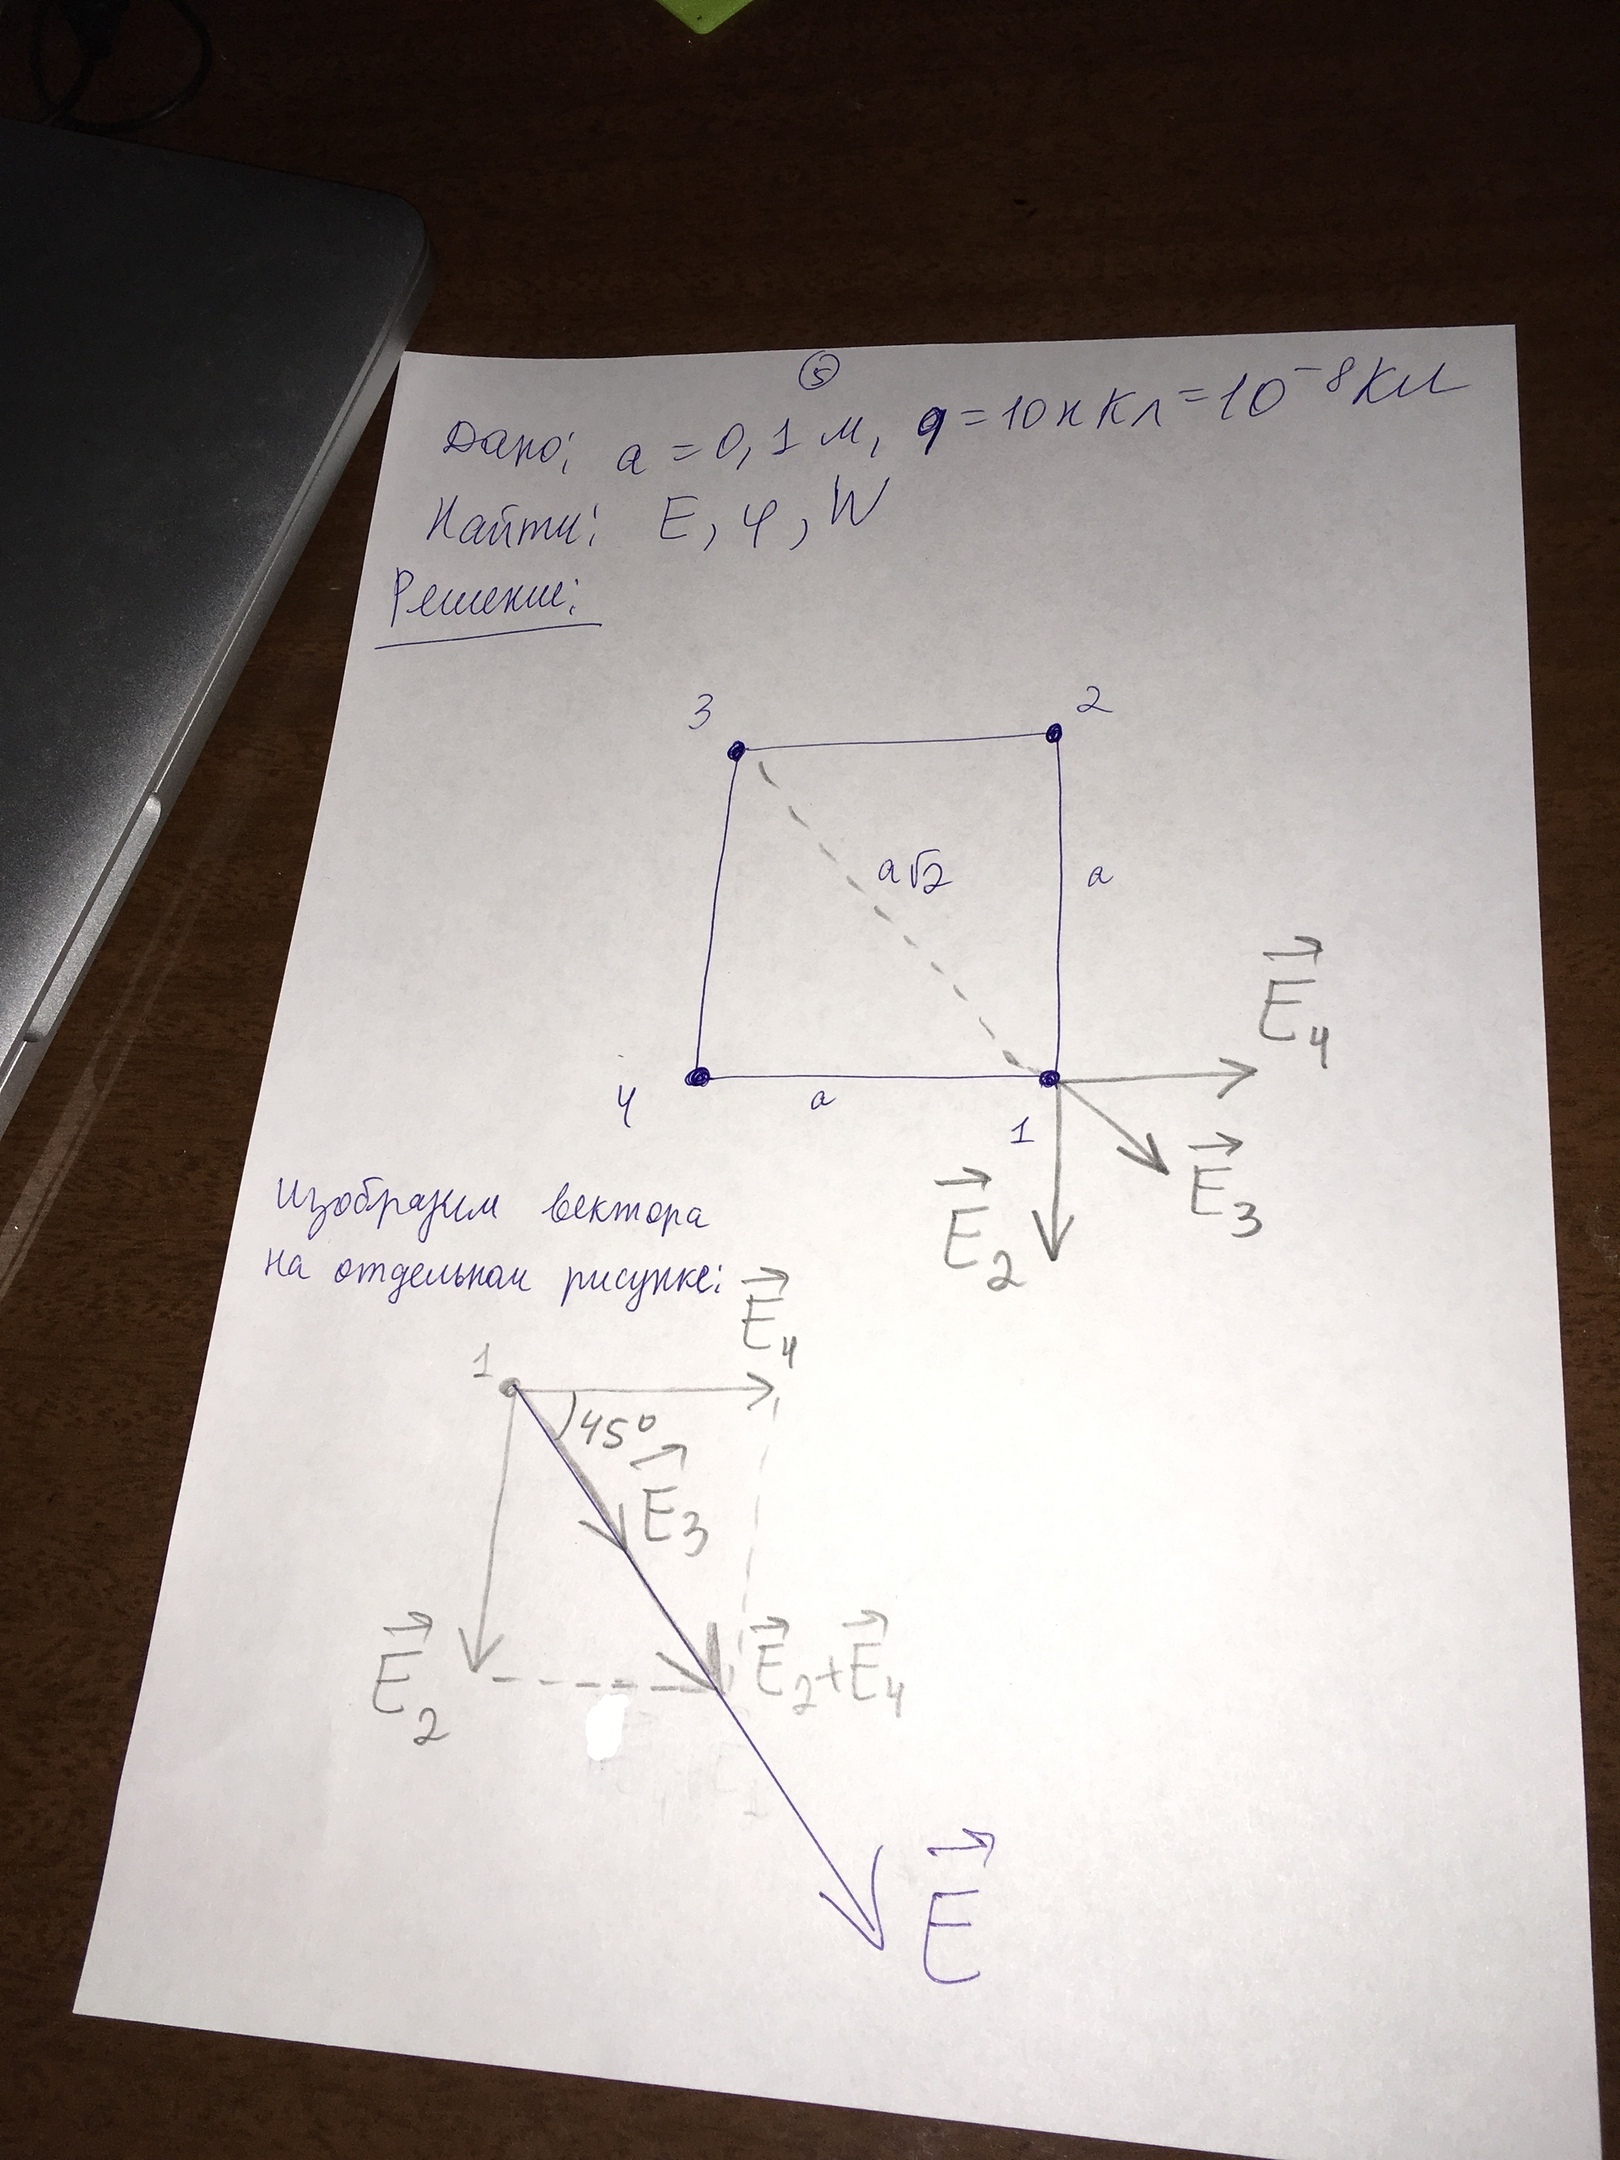 5
Дано: a = 0,1 м, q = 10 нКл = 10⁻⁸ Кл
Найти: E, φ, W
Решение:
3
2
a√2
a
E⃗₄
4
a
1
E⃗₃
E⃗₂
Изобразим вектора
на отдельном рисунке:
E⃗₄
1
45°
E⃗₃
E⃗₂
E⃗₂+E⃗₄
E⃗